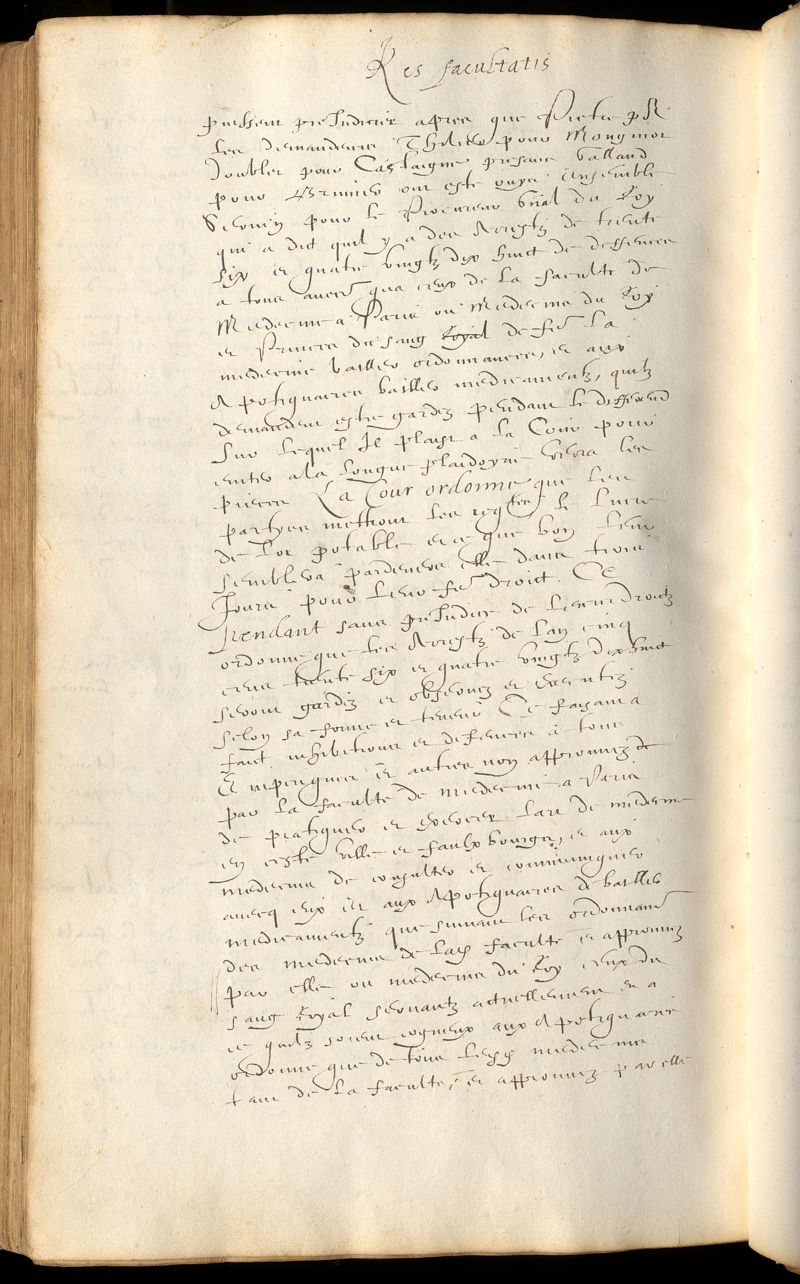 Res facultatis
puissent preiudicier apres que Pietre pR
les demandeurs Thelier pour Monginot
Doublet pour Castaigne present Galland
pour ont esté ouyz ensemble
Servin pour le Procureur gnal du Roy
qui a dict quil y a des Arrestz de trente
six et quatre vingtz dix huict de deffences
a tous aultres qua ceux de la faculté de
Medecine a Paris ou Medecins du Roy
et Princes du sang Royal de fe la
medecine bailler ordonnances, et aux
Apotiquaires bailler medicamentz, quilz
demandent estre gardez pendant le differend
Sur lequel Il plaist a la Cour pour
eviter a la longue plaidoyrie verra les
pieces La Cour ordonne que les
partyes mettront les reqtes le livre
de l'or potable et ce que bon leur
semblera pardevers elle dans trois
Jours pour leur fe droict. Ce
Pendant sans preiudice de leurs droictz
ordonne que les Arrestz de lan cinq
cens trente six et quatre vingtz dixhuict
seront gardez et observez et executez
selon sa forme et teneur Ce faisant a
faict inhibitions et deffences à tous
Empiriques et autres non approuvez de
par la faculté de medecine a Paris
de pratiquer et exercer lart de medecine
en ceste ville et faulxbourgs, et aux
medecins de consulter et communiquer
avecq eux et aux Apotiquaires de bailler
medicamentz que suivant les ordonnances
des medecins de lad faculté et approuvez
par elle ou medecins du Roy ceux du
sang Royal servantz actuellement et a
ce quilz soient cogneux aux Apotiquaires
ordonne que de tous lesd medecins
tant de la faculté, et approuvez par elle